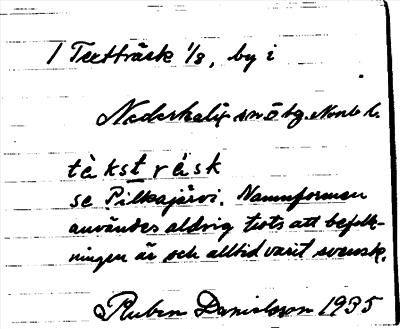 / Textträsk 1/8, by i
Nederkalix snö bg. Norrb. l.
tèkstrásk
se Pilkajärvi. Namnformen
användes aldrig trots att befolk-
ningen är och alltid varit svensk.
Ruben Danielsson 1935